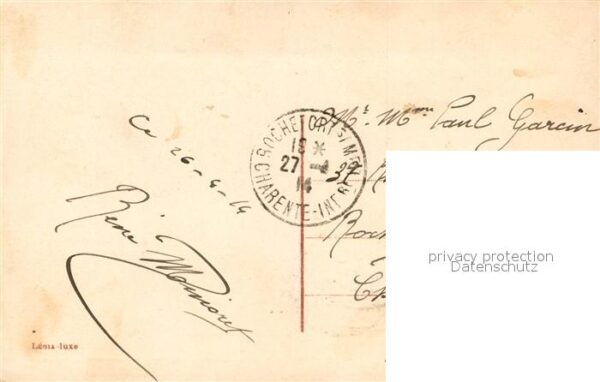 Ce 26-4-14
René
ROCHEFORT S/MER
18 *
27 -4
14
CHARENTE-INFRE
Mr. Mme Paul Garcin
37
Roch
Ch
privacy protection
Datenschutz
LÉGIA-luxe